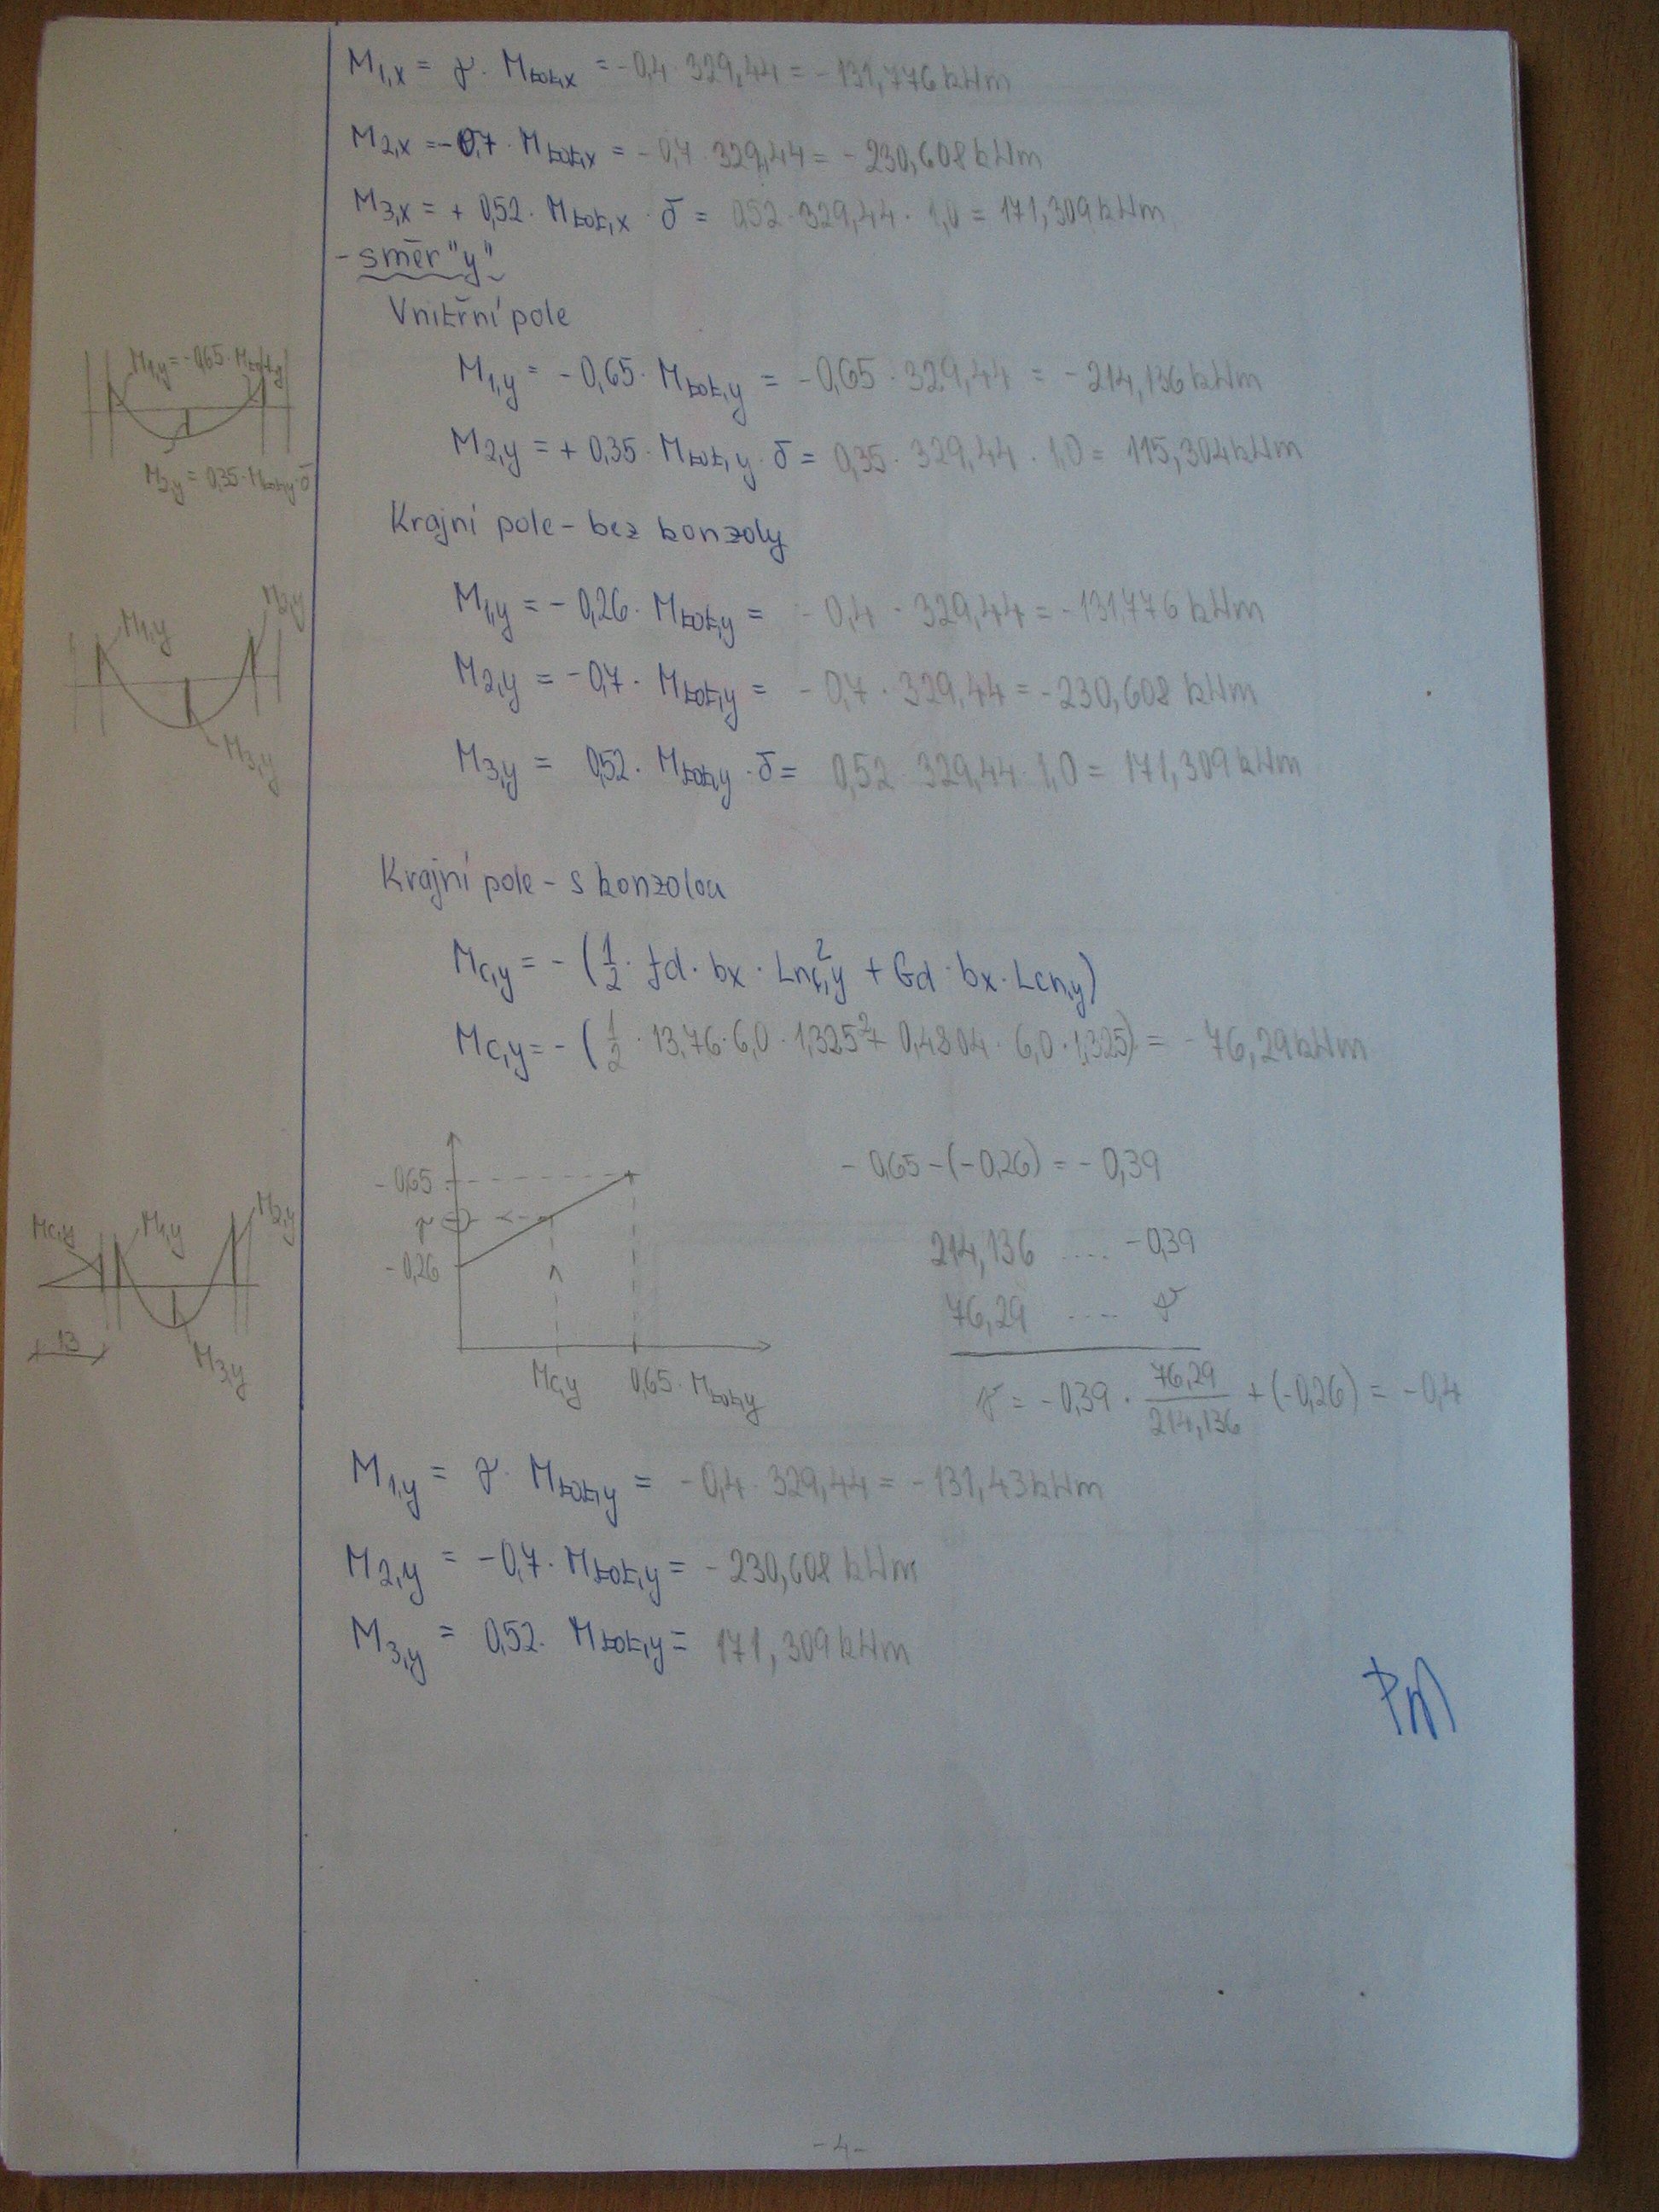 M1,x = γ · Mtot,x = -0,4 · 329,44 = -131,776 kNm
M2,x = -0,7 · Mtot,x = -0,7 · 329,44 = -230,608 kNm
M3,x = + 0,52 · Mtot,x · δ = 0,52 · 329,44 · 1,0 = 171,309 kNm
- směr "y"
Vnitřní pole
M1,y = -0,65 · Mtot,y
M1,y = -0,65 · Mtot,y = -0,65 · 329,44 = -214,136 kNm
M2,y = + 0,35 · Mtot,y · δ = 0,35 · 329,44 · 1,0 = 115,304 kNm
M2,y = 0,35 · Mtot,y · δ
Krajní pole - bez konzoly
M1,y = -0,26 · Mtot,y = -0,4 · 329,44 = -131,776 kNm
M2,y = -0,7 · Mtot,y = -0,7 · 329,44 = -230,608 kNm
M3,y = 0,52 · Mtot,y · δ = 0,52 · 329,44 · 1,0 = 171,309 kNm
M1,y
M2,y
M3,y
Krajní pole - s konzolou
Mc,y = - (1/2 · fd · bx · Lnc,y² + Gd · bx · Lcn,y)
Mc,y = - (1/2 · 13,76 · 6,0 · 1,325² + 0,4804 · 6,0 · 1,325) = -76,29 kNm
-0,65
γ
-0,26
Mc,y
0,65 · Mtot,y
-0,65 - (-0,26) = -0,39
214,136 .... -0,39
76,29 .... γ
γ = -0,39 · 76,29/214,136 + (-0,26) = -0,4
Mc,y
M1,y
M2,y
13
M3,y
M1,y = γ · Mtot,y = -0,4 · 329,44 = -131,43 kNm
M2,y = -0,7 · Mtot,y = -230,608 kNm
M3,y = 0,52 · Mtot,y = 171,309 kNm
-4-